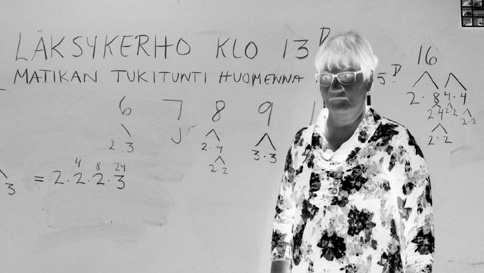 LÄKSYKERHO KLO 13 D
MATIKAN TUKITUNTI HUOMENNA 5 D
6 7 8 9 1 16
J
2·3 2·4 3·3 2·8 4·4
2·2 2·4 2·2 2·2
2·2
3 = 2·2·2·3
4 8 24